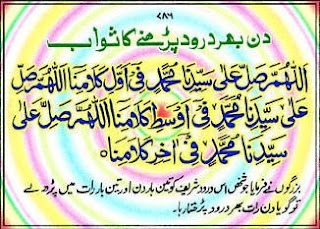 ۷۸۶
دن بھر درود پڑھنے کا ثواب
اَللّٰهُمَّ صَلِّ عَلٰی سَیِّدِنَا مُحَمَّدٍ فِیْ اَوَّلِ کَلَامِنَا اَللّٰهُمَّ صَلِّ
عَلٰی سَیِّدِنَا مُحَمَّدٍ فِیْ اَوْسَطِ کَلَامِنَا اَللّٰهُمَّ صَلِّ عَلٰی
سَیِّدِنَا مُحَمَّدٍ فِیْ اٰخِرِ کَلَامِنَا ○
بزرگوں نے فرمایا جو شخص اس درود شریف کو تین بار دن اور تین بار رات میں پڑھ لے
تو گویا دن رات بھر درود پڑھتا رہا۔